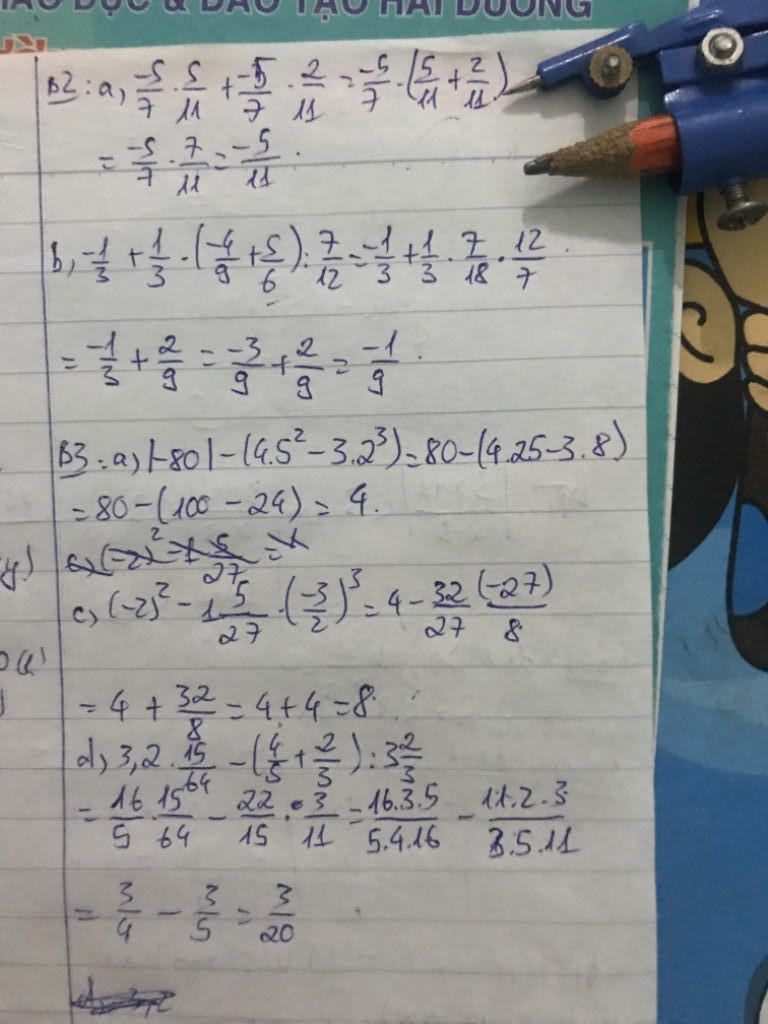 GIÁO DỤC & ĐÀO TẠO HẢI DƯƠNG
B2: a, -5/7 . 5/11 + -5/7 . 2/11 = -5/7 . (5/11 + 2/11)
= -5/7 . 7/11 = -5/11 .
b, -1/3 + 1/3 . (-4/9 + 5/6) : 7/12 = -1/3 + 1/3 . 7/18 . 12/7 .
= -1/3 + 2/9 = -3/9 + 2/9 = -1/9 .
B3: a, |-80| - (4.5² - 3.2³) = 80 - (4.25 - 3.8)
= 80 - (100 - 24) = 4.
y)
c, (-2)² - 1 5/27 . (-3/2)³ = 4 - 32/27 (-27)/8
= 4 + 32/8 = 4 + 4 = 8.
d, 3,2 . 15/64 - (4/5 + 2/3) : 3 2/3
= 16/5 . 15/64 - 22/15 . 3/11 = 16.3.5/5.4.16 - 11.2.3/3.5.11
= 3/4 - 3/5 = 3/20